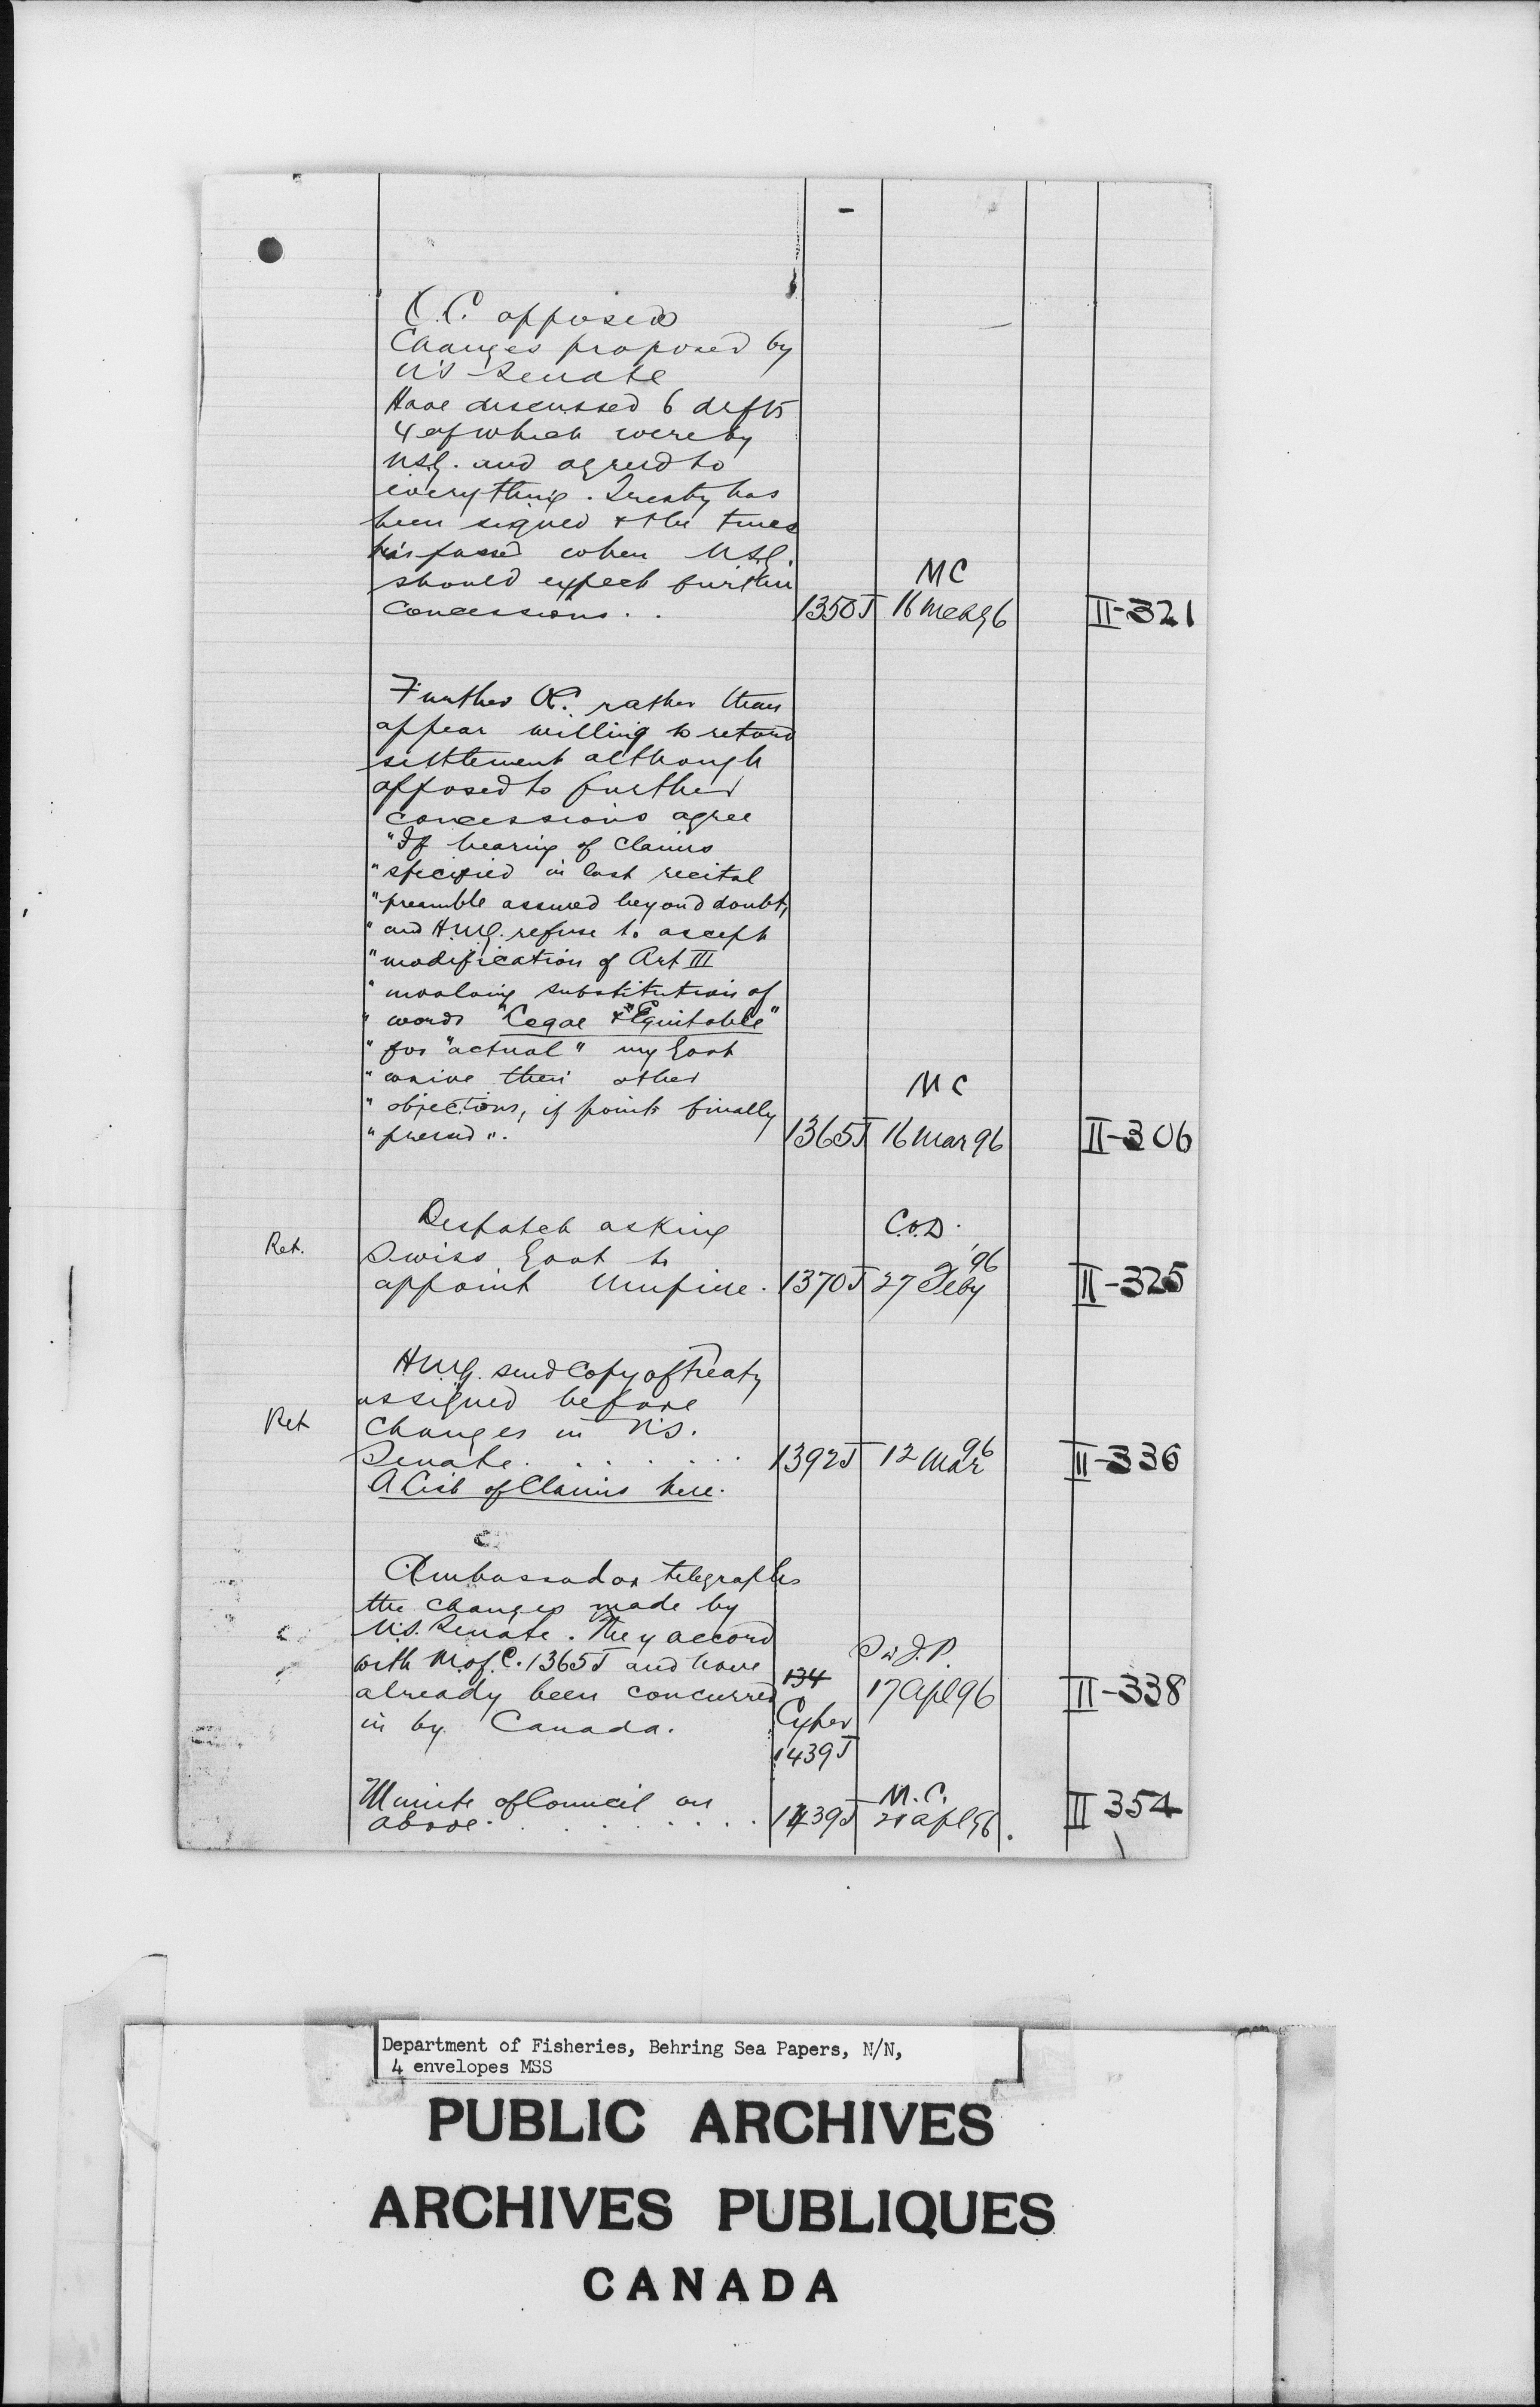 O.C. opposed
Changes proposed by
US Senate
Have discussed 6 drfts
4 of which were by
USG. and agreed to
everything. Treaty has
been signed & the time
has passed when USG.
should expect further
concessions . . 1350J MC 16 Mch 96 II-321
Further OC. rather than
appear willing to retard
settlement although
opposed to further
concessions agree
"If hearing of claims
"specified in last recital
"preamble assured beyond doubt,
"and H.M.G. refuse to accept
"modification of Art III
"involving substitution of
"words "Legal & "Equitable"
"for "actual" my Govt
"waive their other
"objections, if points finally
"pressed". 1365J MC 16 Mar 96 II-306
Despatch asking
Ret. Swiss Govt to
appoint Umpire. 1370J C.O.D. 27 Feby '96 II-325
H.M.G. send Copy of Treaty
as signed before
Ret changes in US.
Senate. . . . . . 1392J 12 Mar 96 II-336
A List of Claims here.
Ambassador telegraphs
the changes made by
U.S. Senate. They accord
with M of C. 1365J and have
already been concurred
in by Canada. 134 Cypher 1439J 17 Apl 96 II-338
Minute of Council on
above. . . . . . . . 1439J M.C. Apl 96. II 354
Department of Fisheries, Behring Sea Papers, N/N,
4 envelopes MSS
PUBLIC ARCHIVES
ARCHIVES PUBLIQUES
CANADA